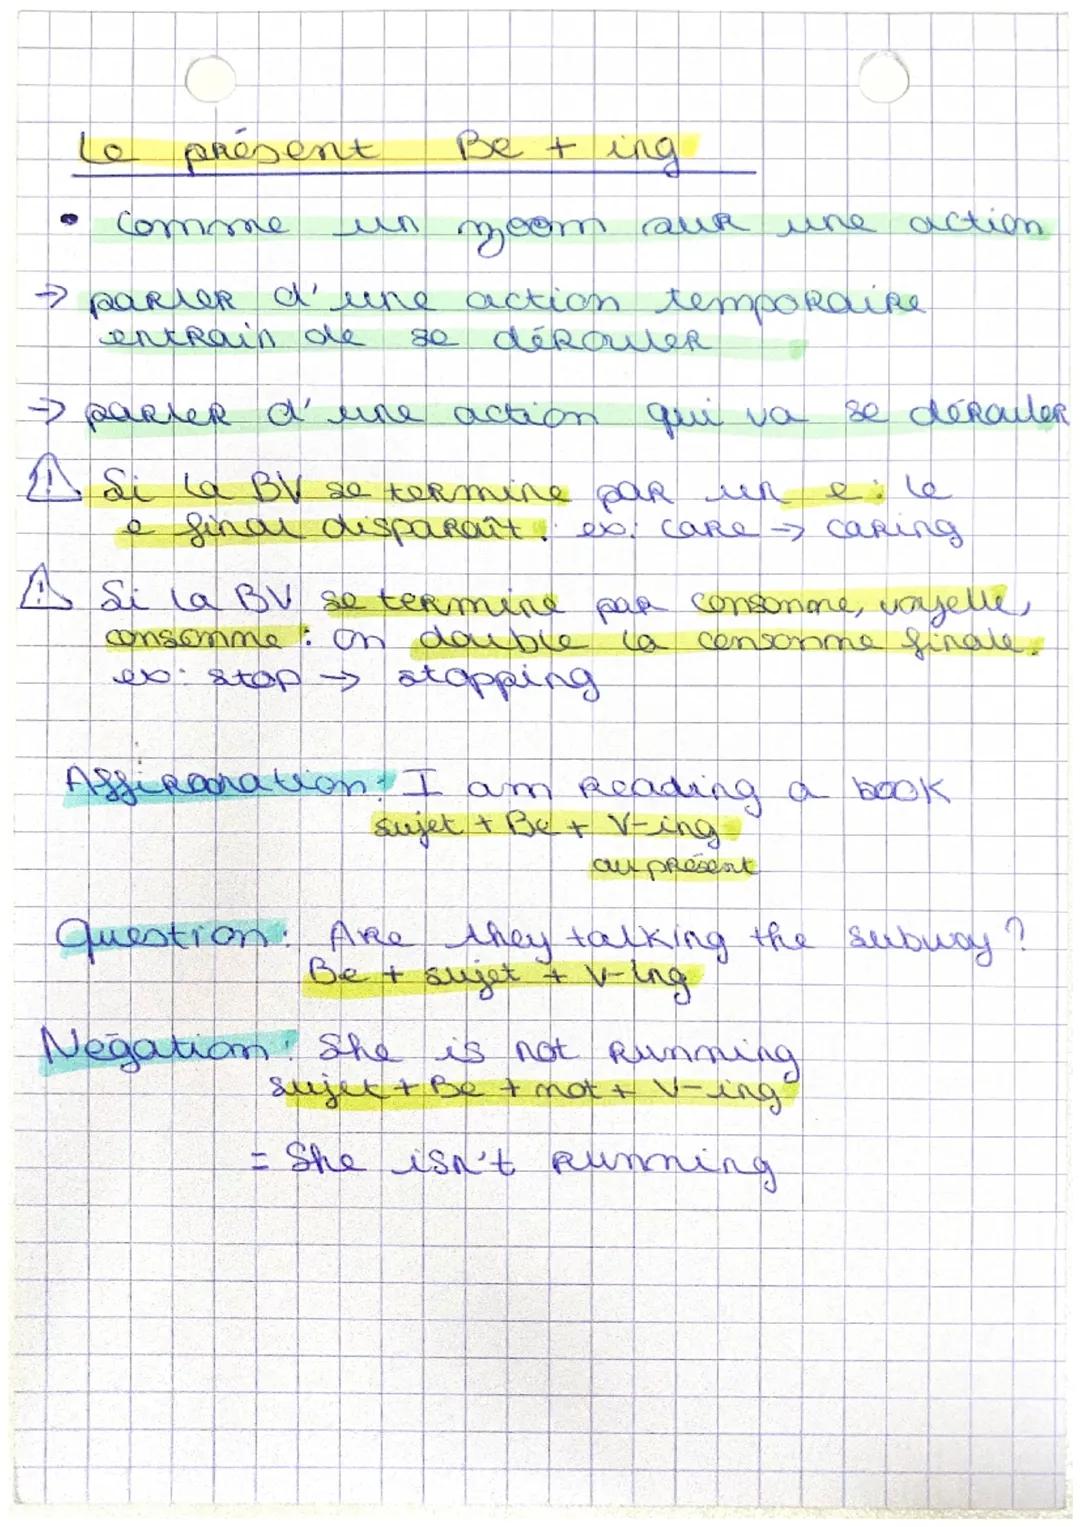 Le présent Be + ing
• Comme un zoom sur une action
→ parler d'une action temporaire
entrain de se dérouler
→ parler d'une action qui va se dérouler
⚠ Si la BV se termine par un e : le
e final disparaît. ex: care → caring
⚠ Si la BV se termine par consonne, voyelle,
consonne : on double la consonne finale.
ex: stop → stopping
Affirmation : I am reading a book
sujet + Be + V-ing
au présent
Question : Are they talking the subway ?
Be + sujet + V-ing
Négation : She is not running
sujet + Be + not + V-ing
= She isn't running